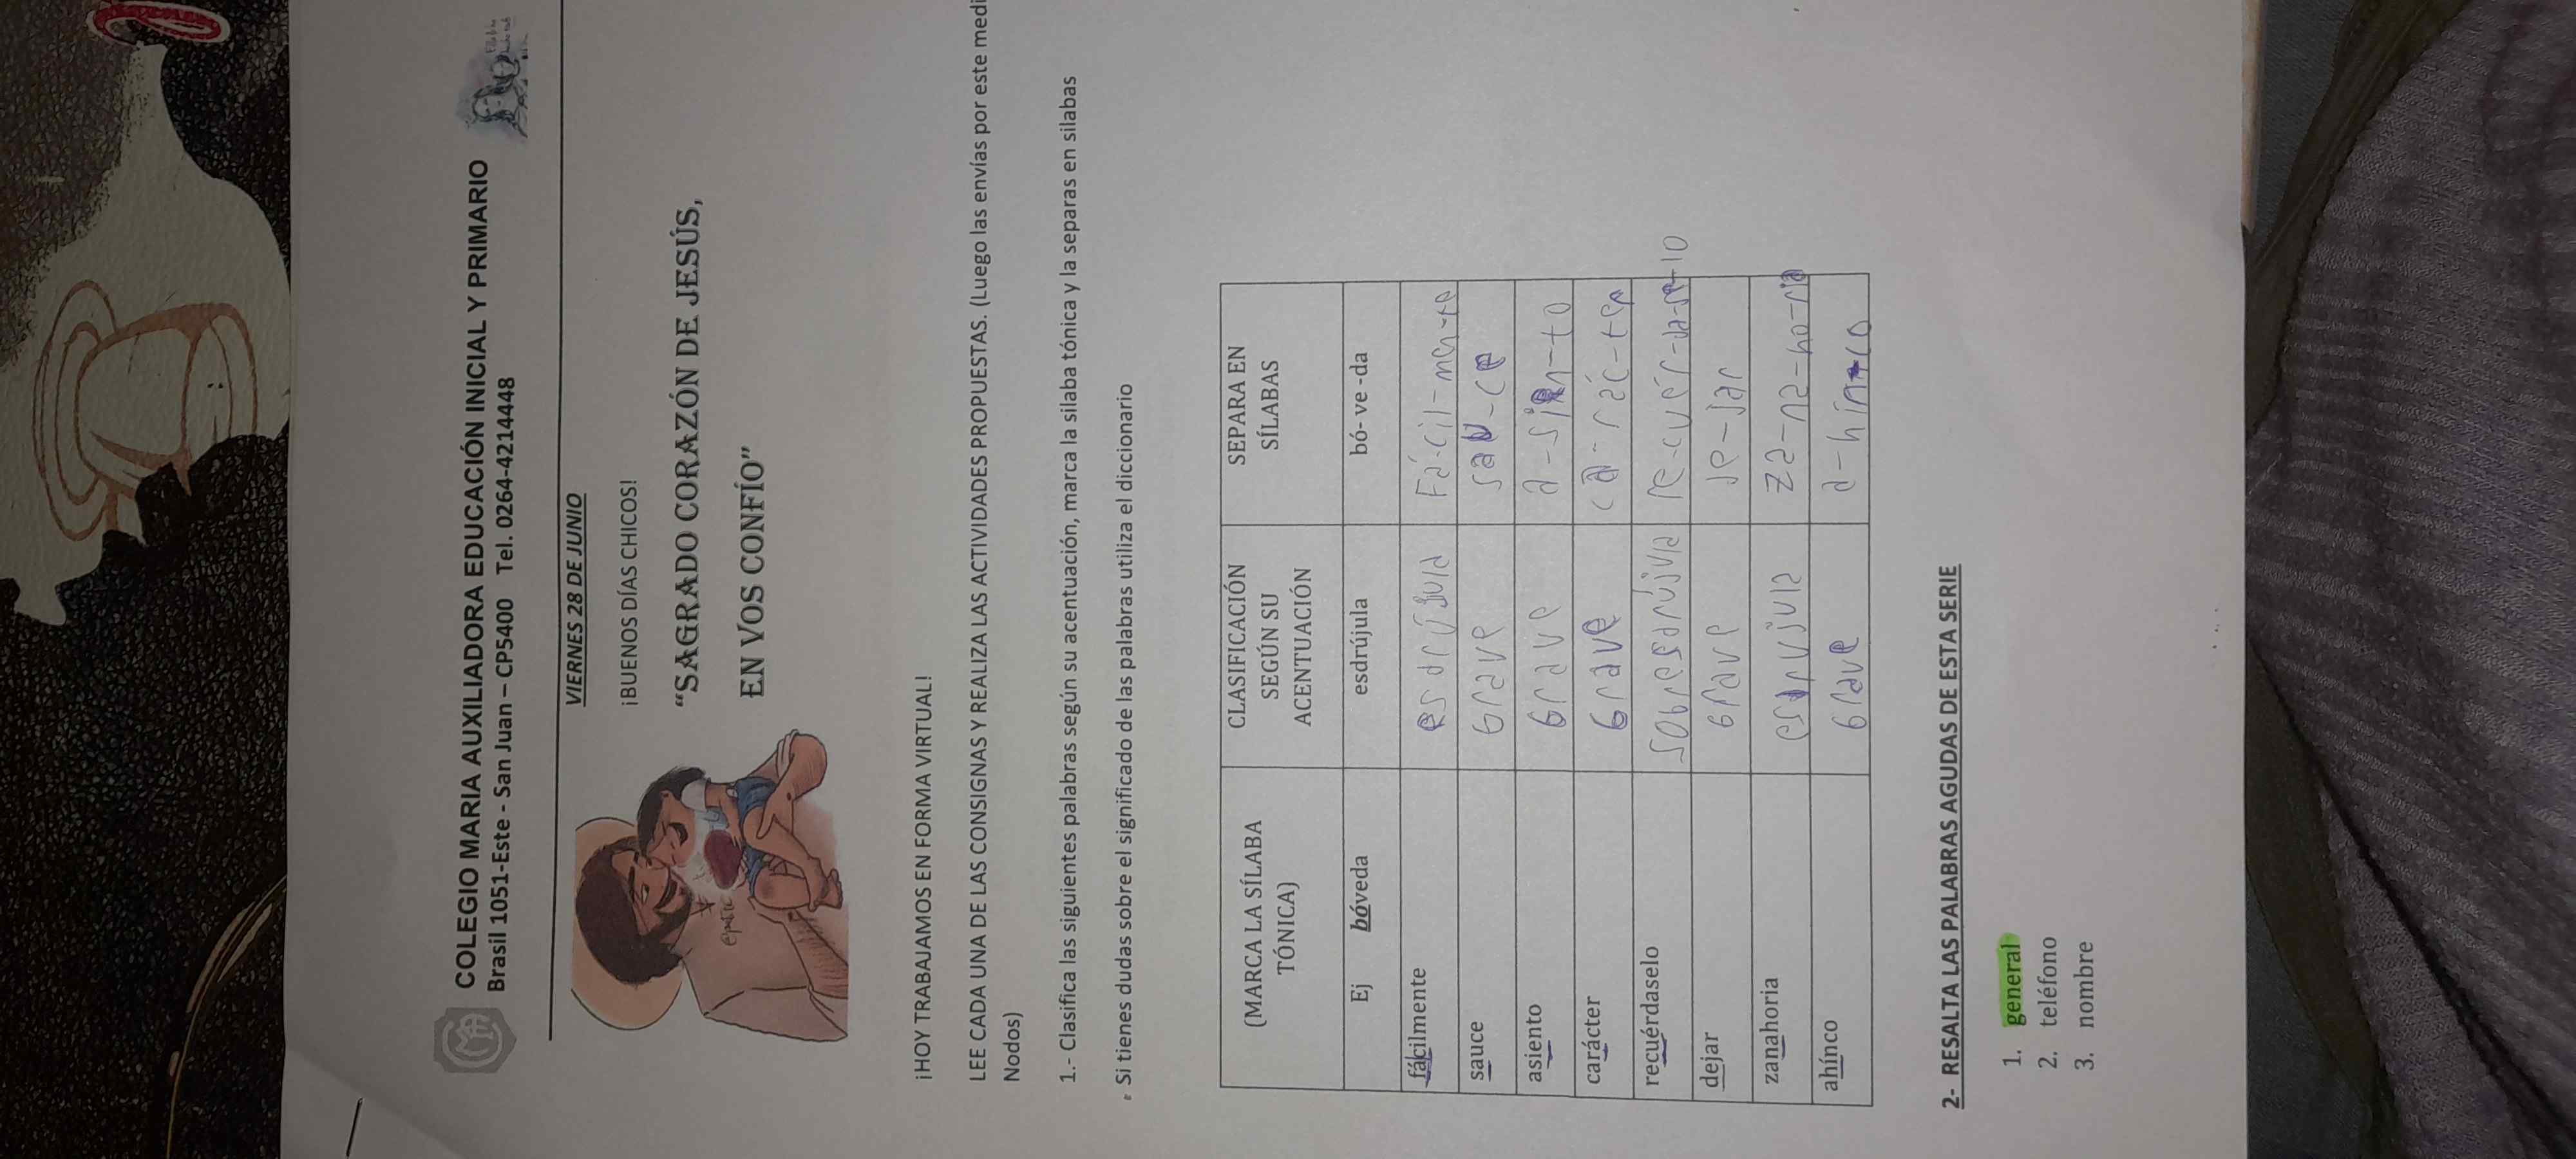 COLEGIO MARIA AUXILIADORA EDUCACIÓN INICIAL Y PRIMARIO
Brasil 1051-Este - San Juan – CP5400 Tel. 0264-4214448
VIERNES 28 DE JUNIO
¡BUENOS DÍAS CHICOS!
“SAGRADO CORAZÓN DE JESÚS,
EN VOS CONFÍO”
¡HOY TRABAJAMOS EN FORMA VIRTUAL!
LEE CADA UNA DE LAS CONSIGNAS Y REALIZA LAS ACTIVIDADES PROPUESTAS. (Luego las envías por este medi
Nodos)
1.- Clasifica las siguientes palabras según su acentuación, marca la silaba tónica y la separas en silabas
Si tienes dudas sobre el significado de las palabras utiliza el diccionario
(MARCA LA SÍLABA TÓNICA) CLASIFICACIÓN SEGÚN SU ACENTUACIÓN SEPARA EN SÍLABAS
Ej bóveda esdrújula bó- ve -da
fácilmente esdrújula Fá-cil-men-te
sauce Grave sau-ce
asiento Grave a-sien-to
carácter Grave ca-rác-ter
recuérdaselo sobresdrújula re-cuér-da-se-lo
dejar Grave de-jar
zanahoria esdrujula za-na-ho-ria
ahínco Grave a-hín-co
2- RESALTA LAS PALABRAS AGUDAS DE ESTA SERIE
1. general
2. teléfono
3. nombre